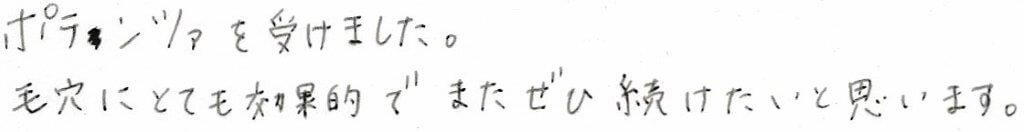 ポテンツァを受けました。
毛穴にとても効果的でまたぜひ続けたいと思います。